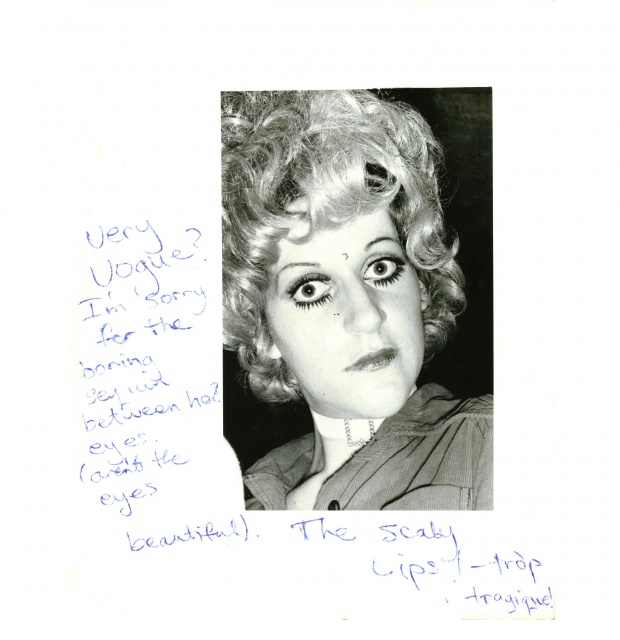 Very
Vogue?
I'm sorry
for the
boring
sequin
between her?
eyes.
(aren't the
eyes
beautiful). The scaly
Lips! - tròp
tragique!